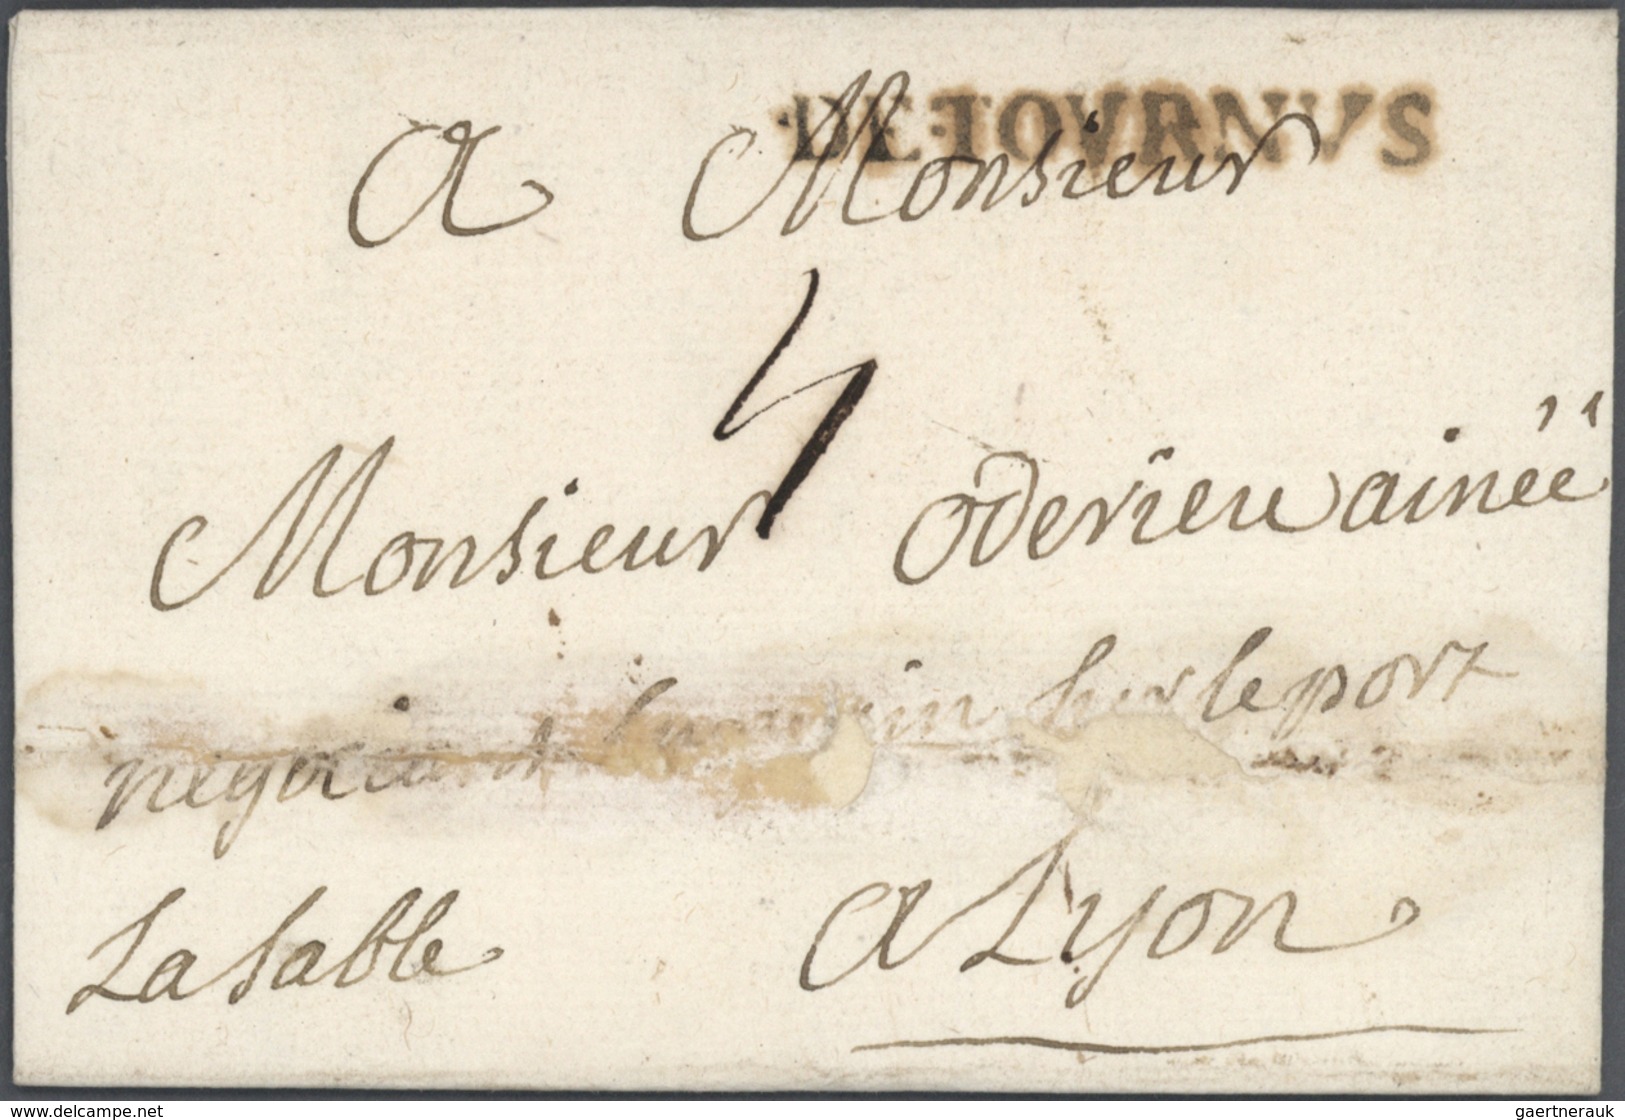 DE TOVRNVS
a Monsieur
4
Monsieur oderieu ainéé
negociant sur le port
La sable
a Lyon
www.delcampe.net
gaertnerauk